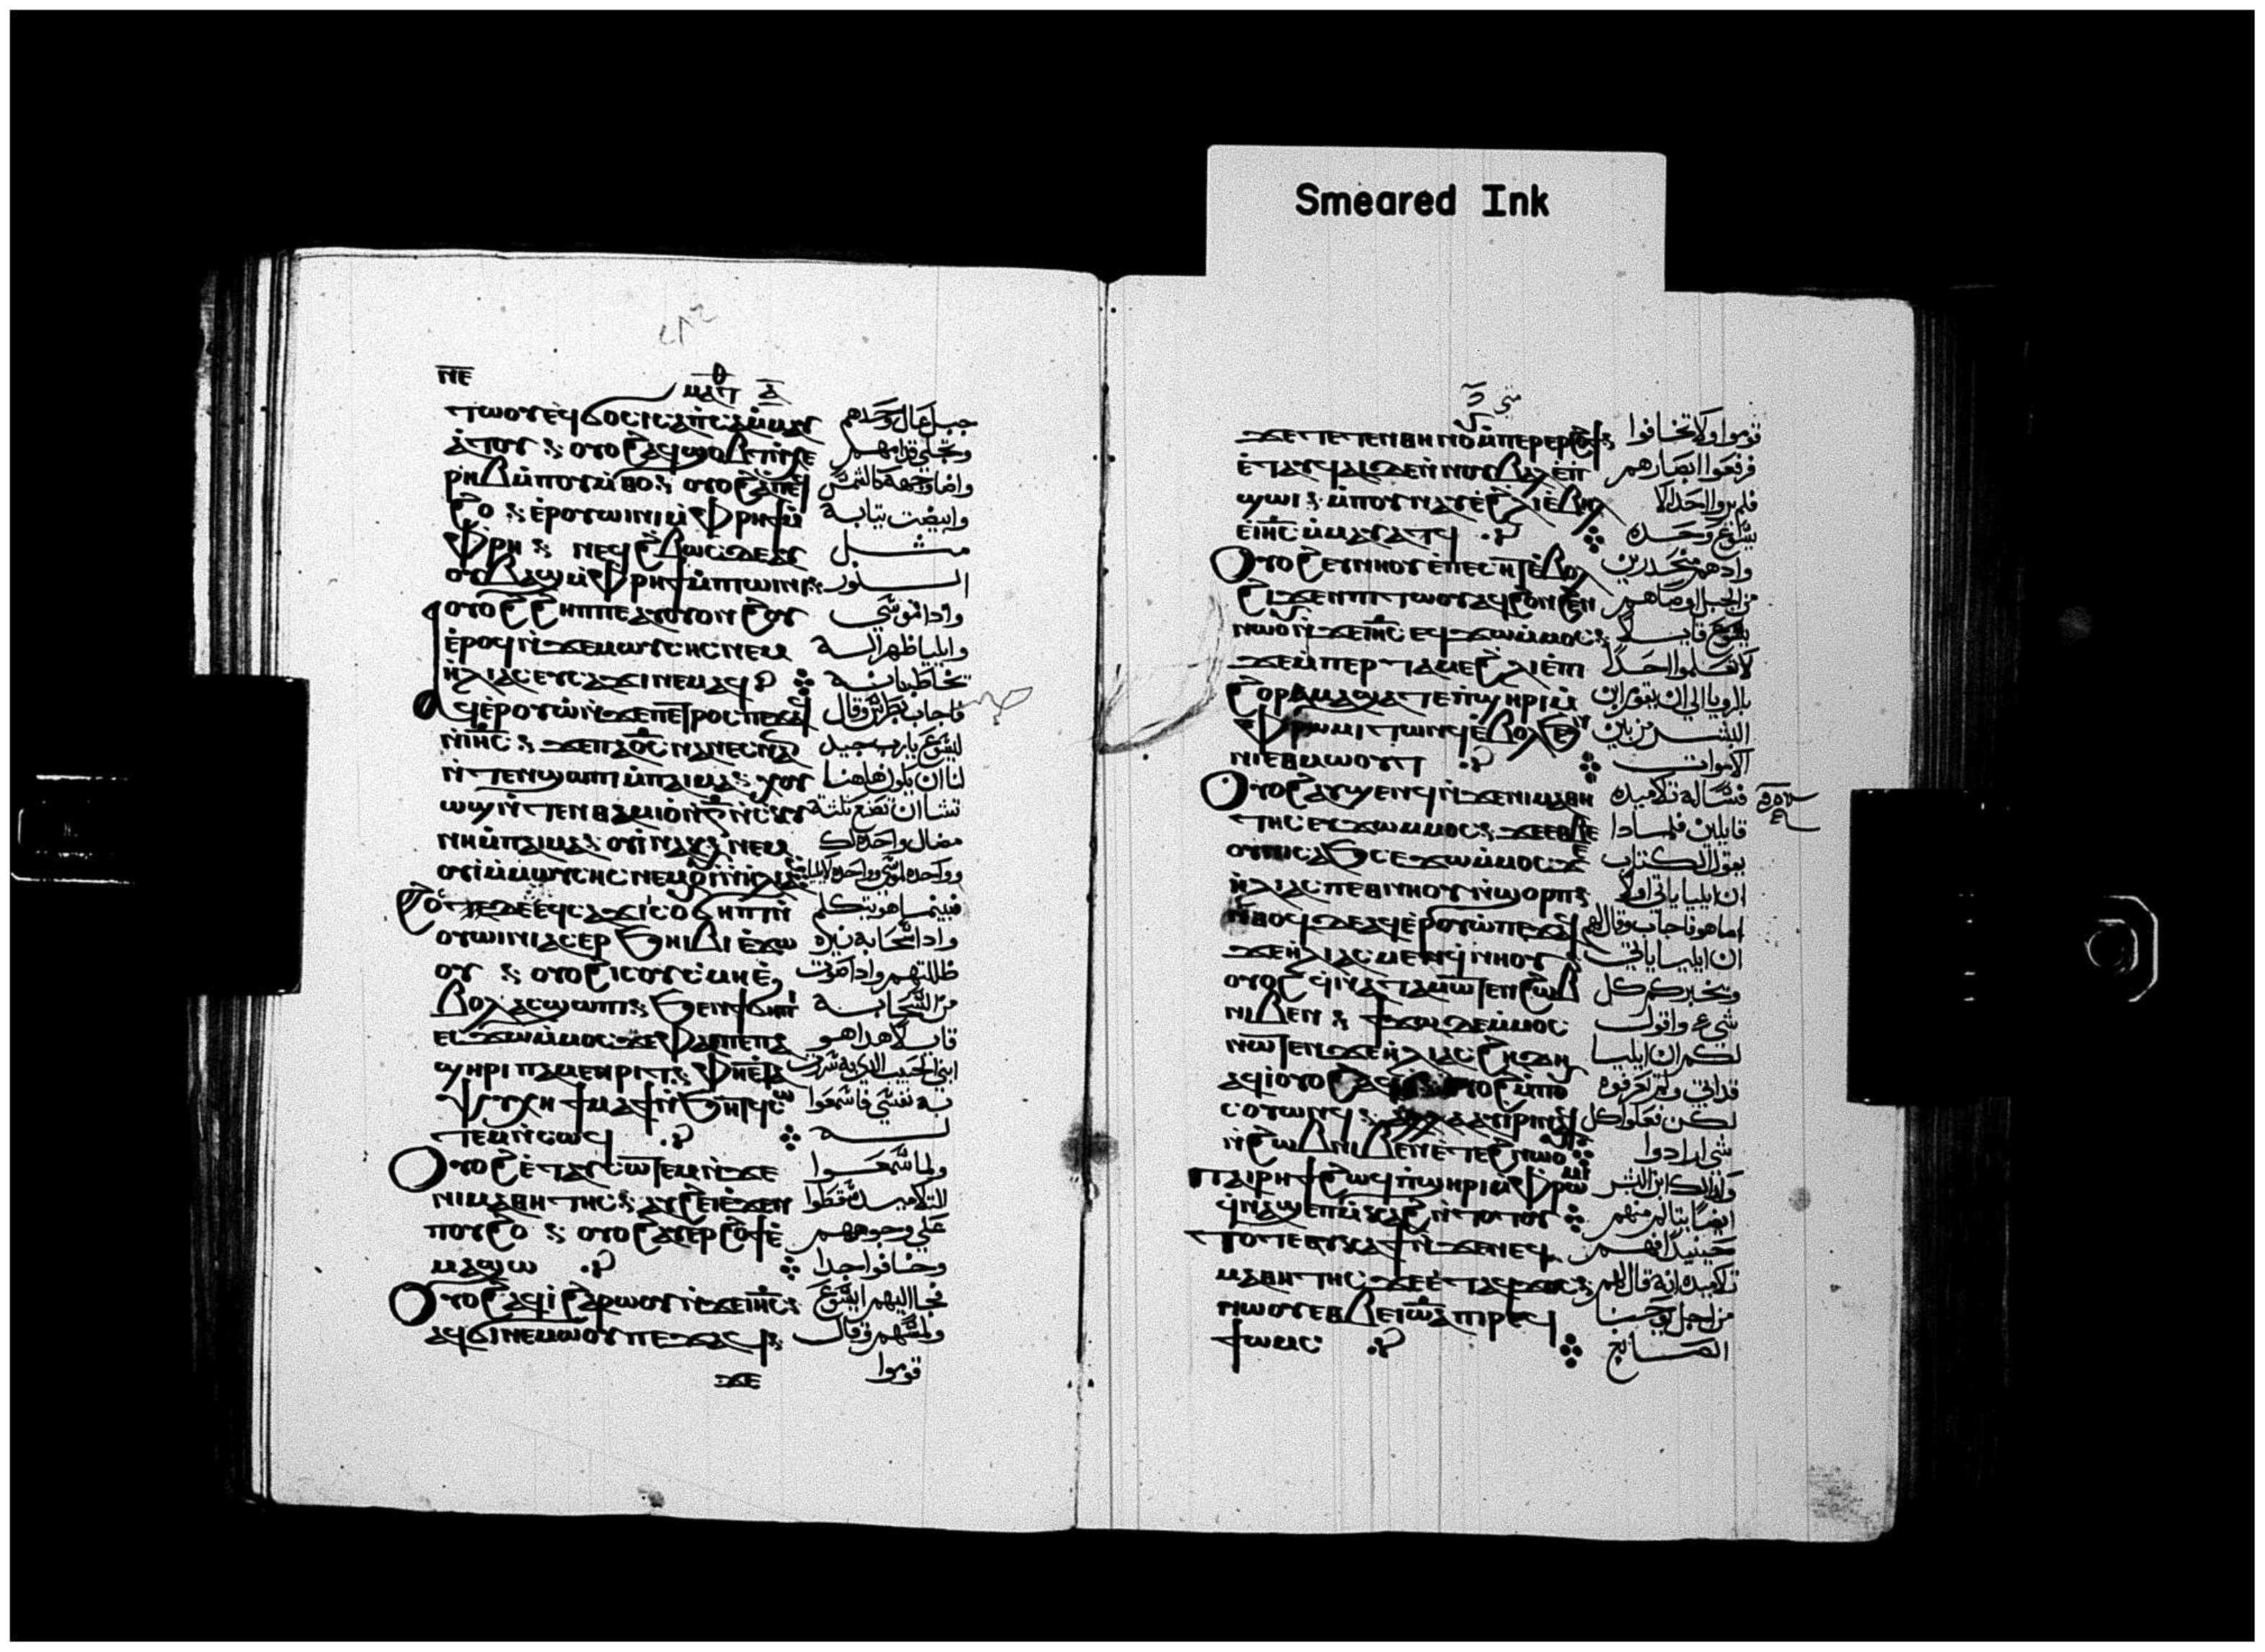 Smeared Ink
ⲛⲉ
ⲙⲁⲧ ⲁ
ⲧⲱⲟⲩ ⲉϥϭⲟⲥⲓ ⲥⲁⲡⲥⲁ ⲙⲙⲁⲩ
ⲁⲧⲟⲩ ⲟⲩⲟϩ ⲁϥϣⲟⲃⲧϥ
ⲙⲡⲟⲩⲙⲑⲟ ⲟⲩⲟϩ ⲁⲡⲉϥ
ϩⲟ ⲉⲣⲟⲩⲱⲓⲛⲓ ⲙⲫⲣⲏϯ ⲙ
ⲫⲣⲏ ⲛⲉϥϩⲃⲱⲥ ⲇⲉ ⲁⲩ
ⲟⲩⲃⲁϣ ⲙⲫⲣⲏϯ ⲙⲡⲓⲱⲓⲛⲓ
ⲟⲩⲟϩ ϩⲏⲡⲡⲉ ⲁⲩⲟⲩⲟⲛϩⲟⲩ
ⲉⲣⲟϥ ⲛϫⲉ ⲙⲱⲩⲥⲏⲥ ⲛⲉⲙ
ⲏⲗⲓⲁⲥ ⲉⲩⲥⲁϫⲓ ⲛⲉⲙⲁϥ
ⲁϥⲉⲣⲟⲩⲱ ⲛϫⲉ ⲡⲉⲧⲣⲟⲥ ⲡⲉϫⲁϥ
ⲛⲓⲏⲥ ϫⲉ ⲡⲁⲟⲥ ⲛⲁⲛⲉⲥ ⲛⲁⲛ
ⲛⲧⲉⲛϣⲱⲡⲓ ⲙⲡⲁⲓⲙⲁ ⲭⲟⲩ
ⲱϣ ⲛⲧⲉⲛⲑⲁⲙⲓⲟ ⲛⲅ ⲛⲥⲕⲩ
ⲛⲏ ⲙⲡⲁⲓⲙⲁ ⲟⲩⲓ ⲛⲁⲕ ⲛⲉⲙ
ⲟⲩⲓ ⲙⲙⲱⲩⲥⲏⲥ ⲛⲉⲙ ⲟⲩⲓ ⲛⲏⲗⲓⲁⲥ
ϩⲟⲧⲉ ⲇⲉ ⲉϥⲥⲁϫⲓ ⲓⲥ ⲟⲩϭⲏⲡⲓ ⲛ
ⲟⲩⲱⲓⲛⲓ ⲁⲥⲉⲣϧⲏⲓⲃⲓ ⲉϫⲱ
ⲟⲩ ⲟⲩⲟϩ ⲓⲥ ⲟⲩⲥⲙⲏ ⲉ
ⲃⲟⲗ ⲁⲥϣⲱⲡⲓ ϧⲉⲛ ϯϭⲏⲡⲓ
ⲉⲥϫⲱ ⲙⲙⲟⲥ ϫⲉ ⲫⲁⲓ ⲡⲉ ⲡⲁ
ϣⲏⲣⲓ ⲡⲁⲙⲉⲛⲣⲓⲧ ⲫⲏⲉⲧⲁ
ⲯⲩⲭⲏ ϯⲙⲁϯ ⲛϧⲏⲧϥ ⲥⲱ
ⲧⲉⲙ ⲛⲥⲱϥ
ⲟⲩⲟϩ ⲉⲧⲁⲩⲥⲱⲧⲉⲙ ⲛϫⲉ
ⲛⲓⲙⲁⲑⲏⲧⲏⲥ ⲁⲩϩⲉⲓ ⲉϫⲉⲛ
ⲡⲟⲩϩⲟ ⲟⲩⲟϩ ⲁⲩⲉⲣϩⲟϯ ⲉ
ⲙⲁϣⲱ
ⲟⲩⲟϩ ⲁϥⲓ ϩⲁⲣⲱⲟⲩ ⲛϫⲉ ⲓⲏⲥ
ⲁϥϭⲓ ⲛⲉⲙⲱⲟⲩ ⲡⲉϫⲁϥ
ϫⲉ
جبل عال وحدهم
وتجلي قدامهم
واضا وجهه كالشمس
وابيضت تيابه
مثل
النور
واذا موسي
وايليا ظهرا له
يخاطبانه
فاجاب بطرس وقال
ليسوع يارب جيد
لنا ان نكون هاهنا
تشا ان نصنع تلتة
مضال واحده لك
وواحده لموسي وواحده لايليا
فبينما هو يتكلم
واذا سحابه نيره
ظللتهم واذا صوت
من السحابه
قايلا هذا هو
ابني الحبيب الذي به سررت
به نفسي فاسمعوا
له
ولما سمعوا
التلاميذ سقطوا
علي وجوههم
وخافوا جدا
فجا اليهم يسوع
ولمسهم وقال
قوموا
متي
ϫⲉ ⲧⲉⲛⲑⲏⲛⲟⲩ ⲙⲡⲉⲣⲉⲣϩⲟϯ
ⲉⲧⲁⲩϥⲁⲓ ⲇⲉ ⲛⲛⲟⲩⲃⲁⲗ ⲉⲡ
ϣⲱⲓ ⲙⲡⲟⲩⲛⲁⲩ ⲉϩⲗⲓ ⲉⲃⲏⲗ
ⲉⲓⲏⲥ ⲙⲙⲁⲩⲁⲧϥ
ⲟⲩⲟϩ ⲉⲩⲛⲏⲟⲩ ⲉⲡⲉⲥⲏⲧ ⲉⲃⲟⲗ
ϩⲓϫⲉⲛ ⲡⲓⲧⲱⲟⲩ ⲁϥϩⲟⲛϩⲉⲛ
ⲛⲱⲟⲩ ⲛϫⲉ ⲓⲏⲥ ⲉϥϫⲱ ⲙⲙⲟⲥ
ϫⲉ ⲙⲡⲉⲣⲧⲁⲙⲉ ϩⲗⲓ ⲉⲡⲓ
ϩⲟⲣⲁⲙⲁ ϣⲁⲧⲉ ⲡϣⲏⲣⲓ ⲙ
ⲫⲣⲱⲙⲓ ⲧⲱⲛϥ ⲉⲃⲟⲗ ϧⲉⲛ
ⲛⲓⲉⲑⲙⲱⲟⲩⲧ
ⲟⲩⲟϩ ⲁⲩϣⲉⲛϥ ⲛϫⲉ ⲛⲓⲙⲁⲑⲏ
ⲧⲏⲥ ⲉⲩϫⲱ ⲙⲙⲟⲥ ϫⲉ ⲉⲑⲃⲉ
ⲟⲩ ⲛⲓⲥⲁϧ ⲥⲉϫⲱ ⲙⲙⲟⲥ ϫⲉ
ⲏⲗⲓⲁⲥ ⲡⲉⲑⲛⲏⲟⲩ ⲛϣⲟⲣⲡ
ⲛⲑⲟϥ ⲇⲉ ⲁϥⲉⲣⲟⲩⲱ ⲡⲉϫⲁϥ
ϫⲉ ⲏⲗⲓⲁⲥ ⲙⲉⲛ ϥⲛⲏⲟⲩ
ⲟⲩⲟϩ ϥⲛⲁⲧⲁⲙⲱⲧⲉⲛ ϩⲱⲃ
ⲛⲓⲃⲉⲛ ϯϫⲱ ⲇⲉ ⲙⲙⲟⲥ
ⲛⲱⲧⲉⲛ ϫⲉ ⲏⲗⲓⲁⲥ ϩⲏⲇⲏ
ⲁϥⲓ ⲟⲩⲟϩ ⲟⲩⲟϩ ⲙⲡⲟⲩ
ⲥⲟⲩⲱⲛϥ ⲁⲗⲗⲁ ⲁⲩⲓⲣⲓ ⲛⲁϥ
ⲛϩⲱⲃ ⲛⲓⲃⲉⲛ ⲉⲧⲉϩⲛⲱⲟⲩ
ⲡⲁⲓⲣⲏϯ ϩⲱϥ ⲡϣⲏⲣⲓ ⲙⲫⲣⲱⲙⲓ
ϥⲛⲁϣⲉⲡⲙⲕⲁϩ ⲛⲧⲟⲧⲟⲩ
ⲧⲟⲧⲉ ⲁⲩⲕⲁϯ ⲛϫⲉ ⲛⲉϥ
ⲙⲁⲑⲏⲧⲏⲥ ϫⲉ ⲉⲧⲁϥϫⲟⲥ
ⲛⲱⲟⲩ ⲉⲑⲃⲉ ⲓⲱⲁ ⲡⲓⲣⲉϥ
ϯⲱⲙⲥ
قوموا ولا تخافوا
فرفعوا ابصارهم
فلم يروا احدا الا
يسوع وحده
واذ هم منحدرين
من الجبل اوصاهم
يسوع قايلا
لا تعلموا احدا
بالرويا الي ان يقوم ابن
البشر من بين
الاموات
فساله تلاميذه
قايلين فلماذا
يقول الكتاب
ان ايليا ياتي اولا
اما هو فاجاب وقال لهم
ان ايليا ياتي
ويخبركم كل
شي واقول
لكم ان ايليا
قد اتي ولم يعرفوه
لكن فعلوا كل
شي ارادوا
وكذلك ابن البشر
ايضا يتالم منهم
حينيذ فهم
تلاميذه انه قال لهم
من اجل يوحنا
الصابغ